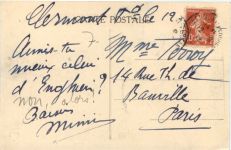 Clermont Fd. Ce 19
POSTALE
Aimes-tu
mieux celui
d'Enghien ?
non, alors!
Baisers
Mimi
Mme Boroy
14 Rue Th. de
Banville
Paris